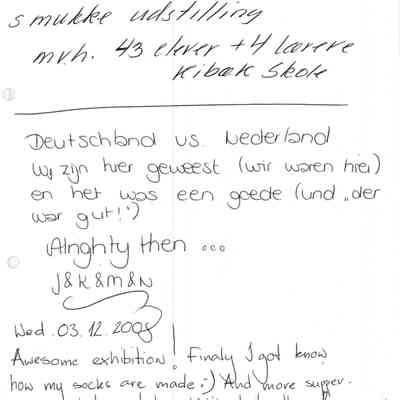 smukke udstilling
mvh. 43 elever + 4 lærere
Kibæk Skole
Deutschland vs. Nederland
Wij zijn hier geweest (wir waren hier)
en het was een goede (und „der
war gut!")
Alrighty then ...
J & K & M & N
Wed. 03.12.2008
Awesome exhibition! Finaly I got know
how my socks are made :) And more supper.